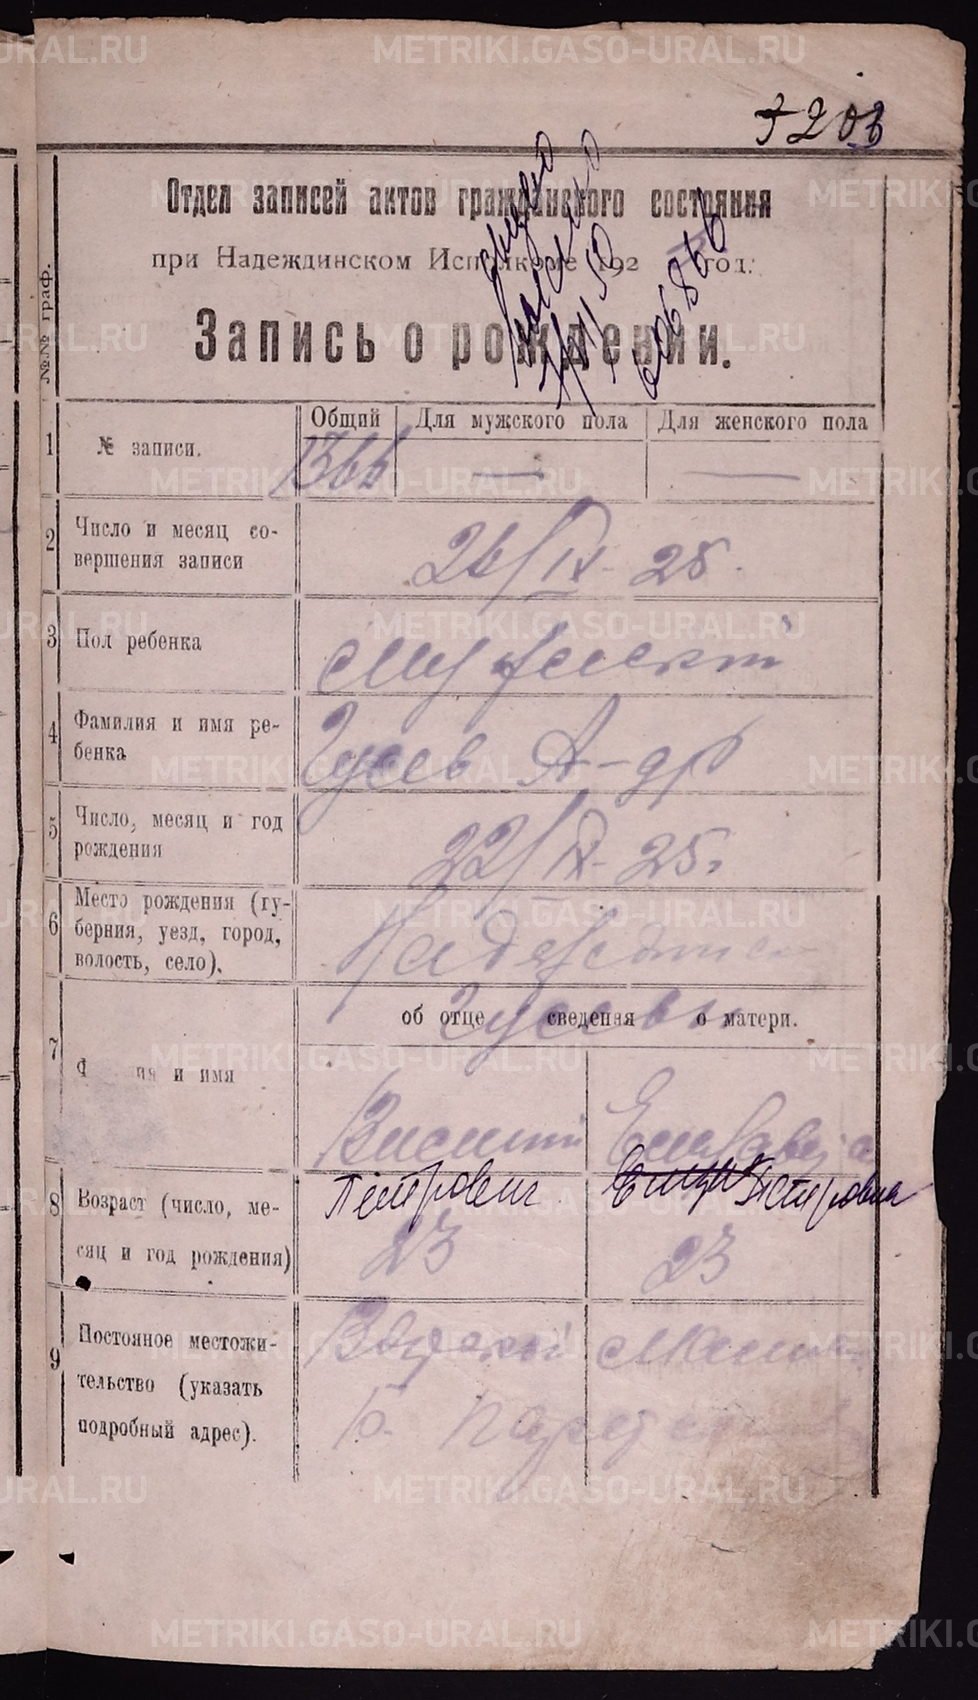 203
Отдел записей актов гражданского состояния
при Надеждинском Исполкоме 192 год.
Запись о рождении.
№№ граф.
Общий Для мужского пола Для женского пола
1 № записи. 1366 — —
2 Число и месяц со-
вершения записи
26/IX - 25.
3 Пол ребенка мужской
4 Фамилия и имя ре-
бенка
Гусев А-др
5 Число, месяц и год
рождения
22/IX - 25.
6 Место рождения (гу-
берния, уезд, город,
волость, село).
Надеждинск
Гусевы
об отце сведения о матери.
7 ия и имя
Василий Елизавета
Петрович Петровна
8 Возраст (число, ме-
сяц и год рождения)
23 23
9 Постояное местожи-
тельство (указать
подробный адрес).
METRIKI.GASO-URAL.RU